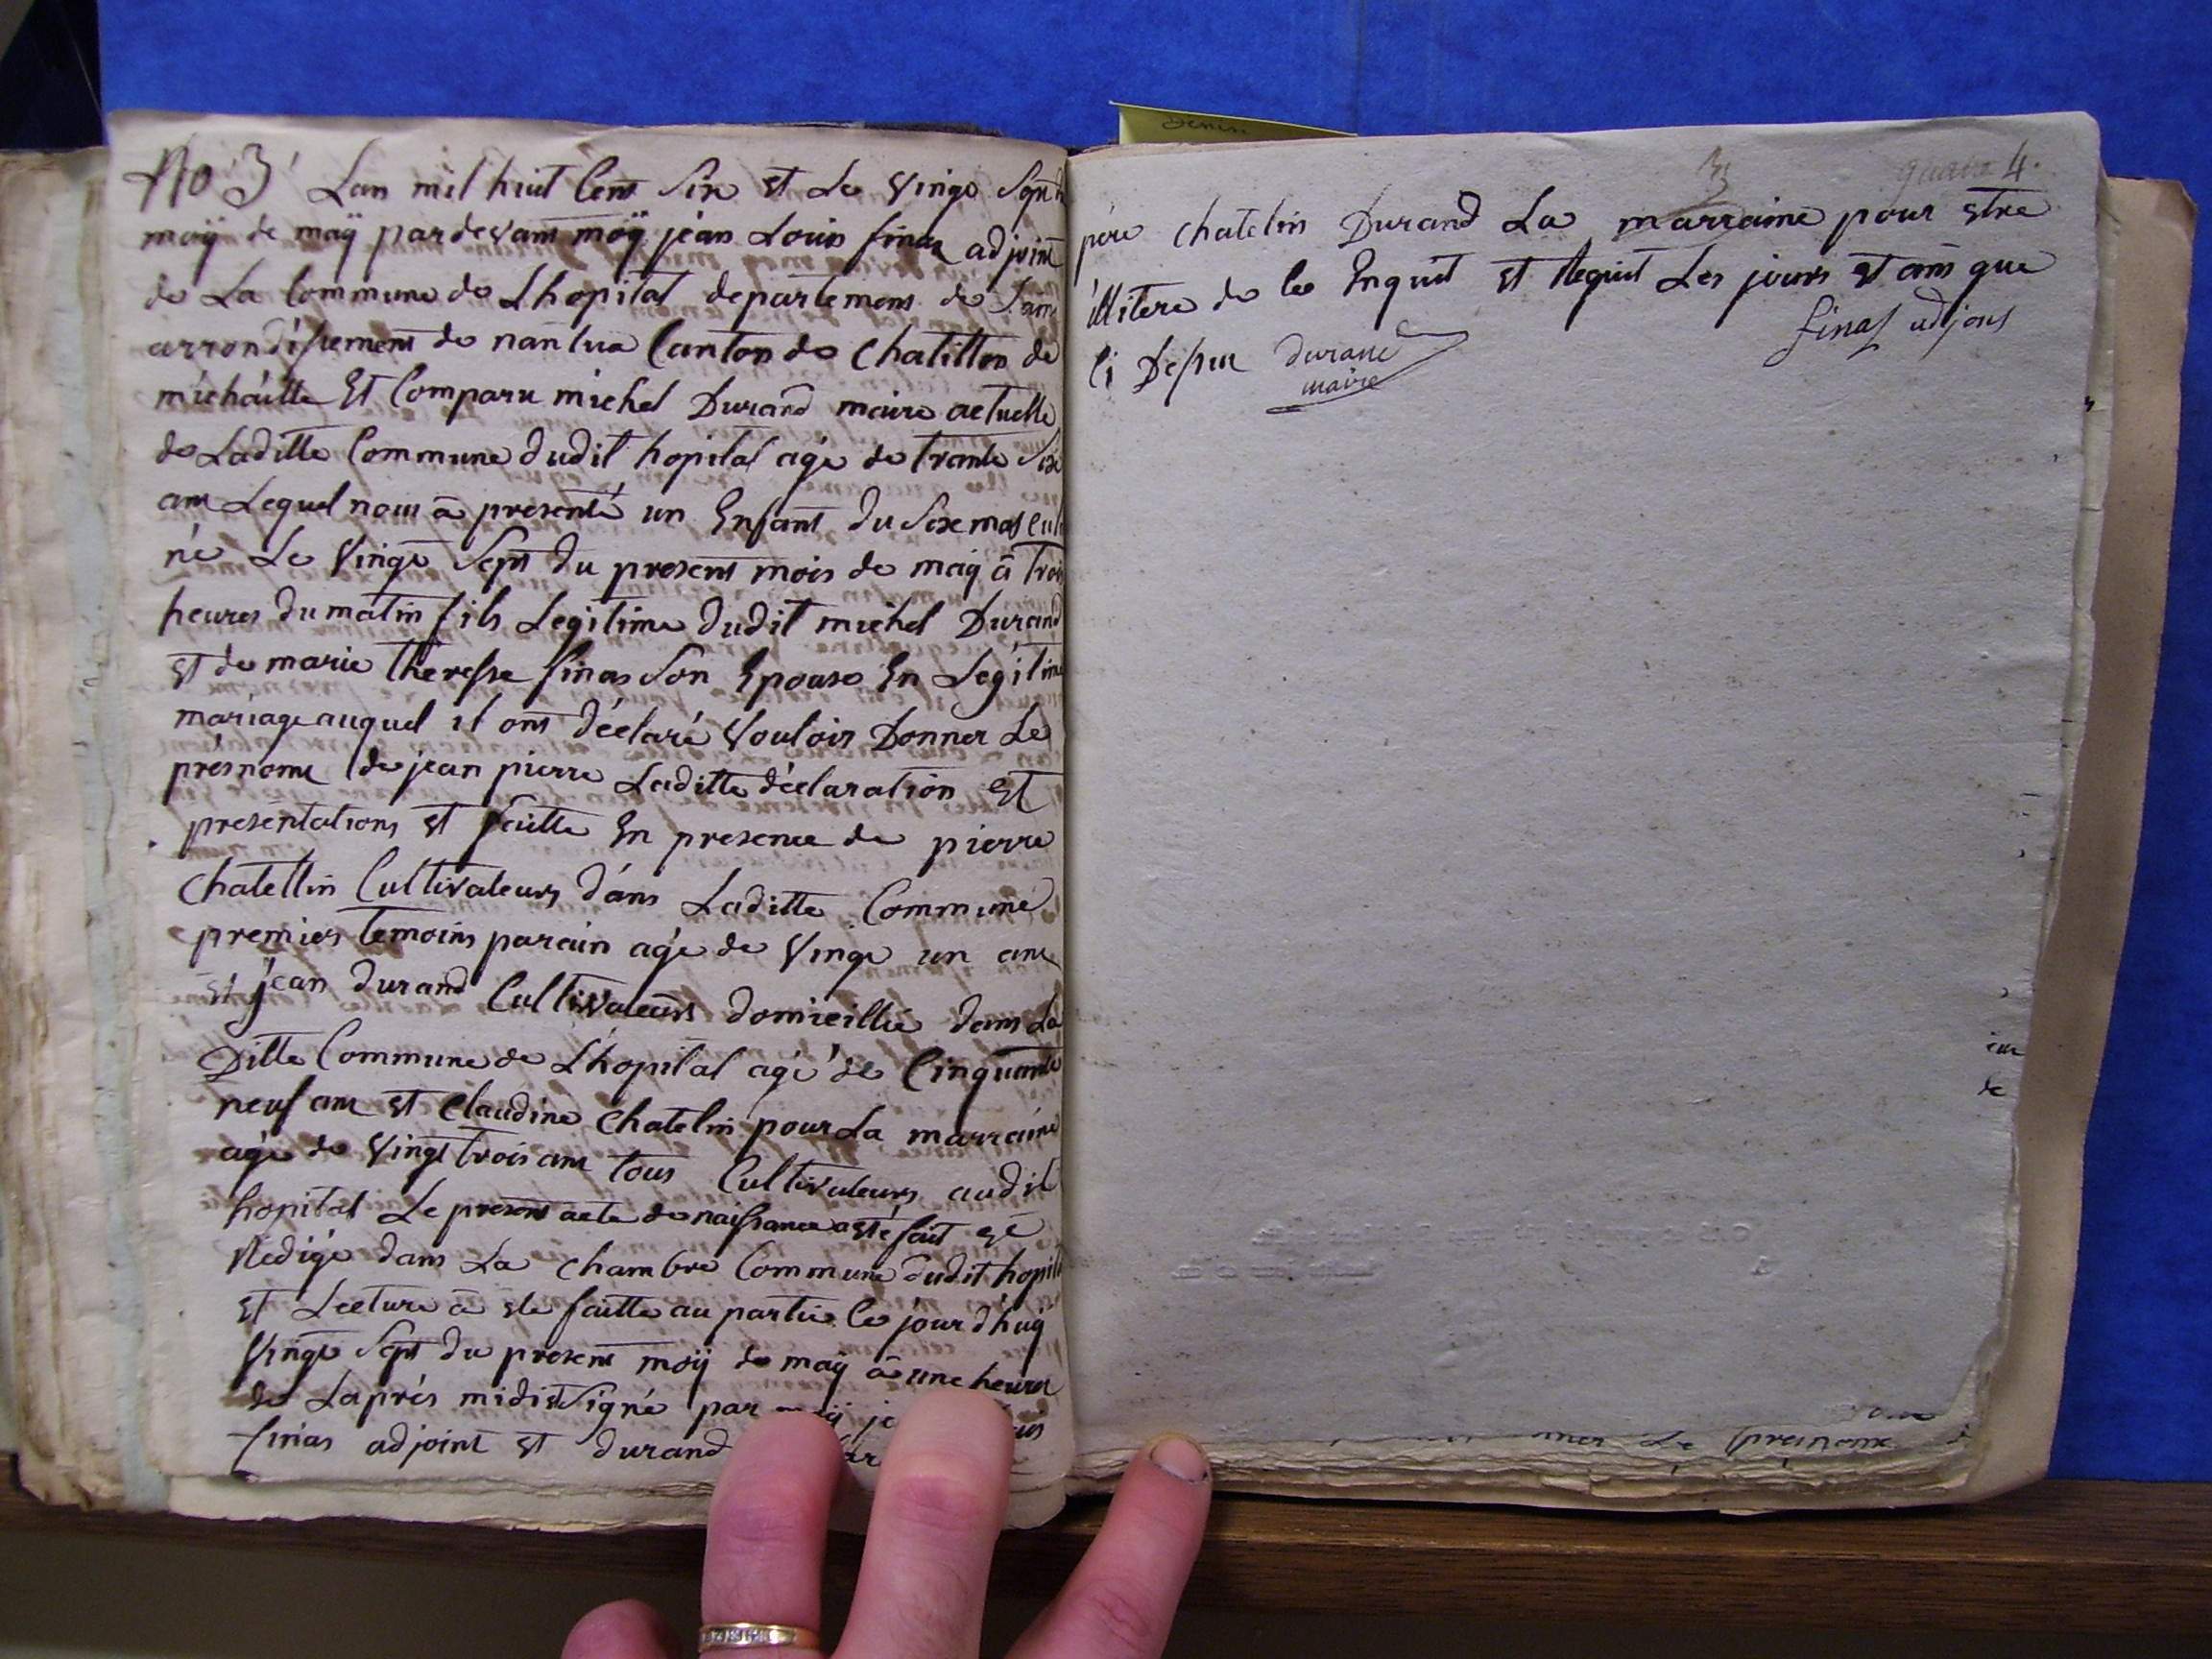 No 3 Lan mil huit Cent Six et Le Vingt Sept
moÿ de maÿ pardevant moÿ jean Louis finas adjoint
de La Commune de Lhopital departement de Lain
arrondissement de nantua Canton de Chatillon de
michaille Et Comparu michel Durand maire actuelle
de Laditte Commune dudit hopital agé de trante Six
ans Lequel nous à presenté un Enfant du Sexe mascul
né Le Vingt Sept du present mois de maÿ à trois
heures du matin fils Legitime dudit michel Durand
et de marie theresse finas Son Epouse En Legitime
mariage auquel il ont déclaré Vouloir Donner Le
presnome de jean pierre Laditte déclaration et
presentations et faitte En presence de pierre
Chatellin Cultivateurs dans Laditte Commune
premier temoins parain agé de Vingt un ans
et jean durand Cultivateurs domicillié dans La
Ditte Commune de Lhopital agé de Cinquante
neuf ans et Claudine Chatelin pour La marraine
agé de Vingt trois ans tous Cultivateurs audit
hopital Le present acte de naissance a esté fait et
Redigé dans La Chambre Commune dudit hopital
et Lecture à ete faitte au partie Ce jour d'huÿ
Vingt Sept du present moÿ de maÿ à une heures
de Laprés midi et Signé par moÿ
finas adjoint et durand
Denis
3 quatre 4.
pére Chatelin Durand La marraine pour etre
illitere de Ce Enquit et Requit Les jours et ans que
Ci Desur durand finas adjoint
maire
presnome